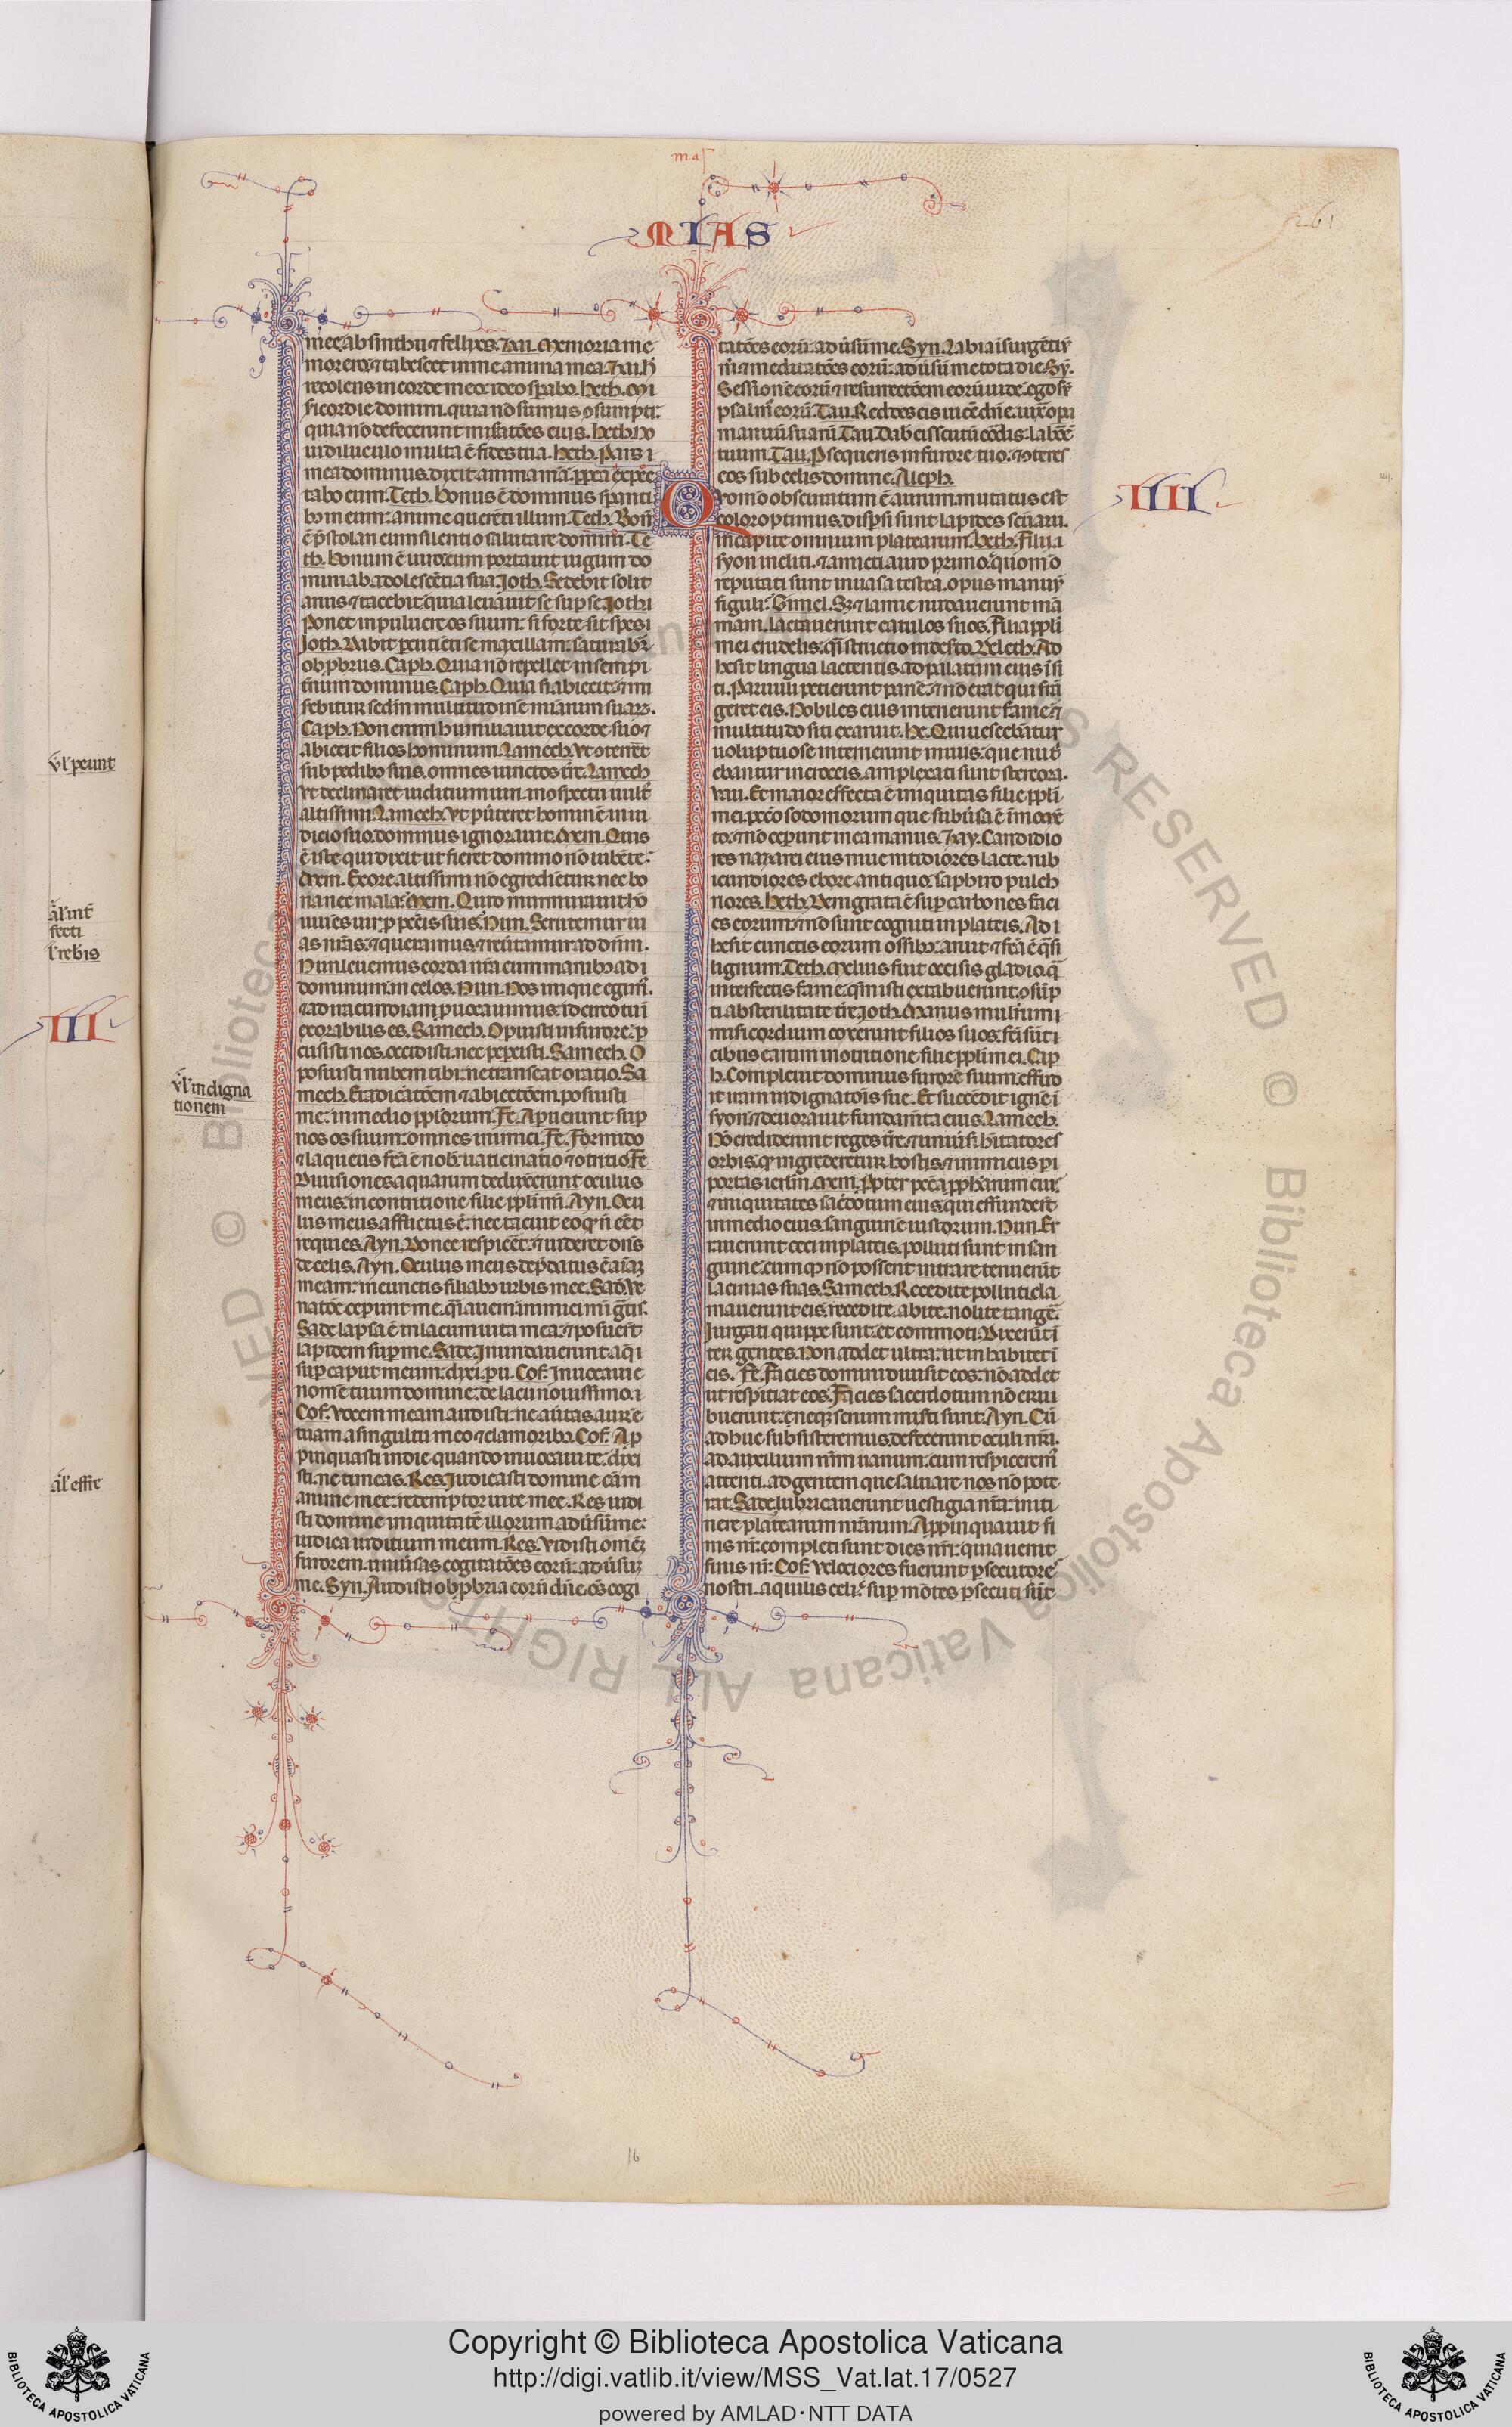 maſ
MIAS
261
ṽl peunt
al' int̃
fecti
l' rebis
III
al' effre
ṽl' indigna
tionem
mee absinthii ⁊ fell̃ xes. Zai. Memoria me
mor ero: ⁊ tabescet in me anima mea. Zai. h̃
recolens in corde meo: ideo sp̃abo. Heth. Mi
sicordie domini. quia nõ sumus ↄsumpti:
quia nõ defecerunt misatões eius. Heth. No
ui diluculo multa ẽ fides tua. Heth. Pars
mea dominus. dixit anima mã. ꝓpea expec
tabo eum. Teth. Bonus ẽ dominus sp̃anti
bus in eum: anime querẽti illum. Teth. Bonũ
ẽ p̃stolari cum silentio salutare domini. Te
th. Bonum ẽ uiro: cum portauit iugum do
mini ab adolescẽtia sua. Joth. Sedebit solit
arius ⁊ tacebit: quia leuauit se sup̃ se. Joth
Ponet in puluere os suum: si forte sit spes
Joth. Dabit ꝑcutiẽti se maxillam: saturabit̃
obꝓbriis. Caph. Quia nõ repellet in sempi
t̃num dominus. Caph. Quia si abiecit: ⁊ mi
sebitur sedm̃ multitudinẽ mi̅anum suaꝝ.
Caph. Non enim humiliauit ex corde suo ⁊
abiecit filios hominum. Lamech. Vt ↄteret̃
sub pedibꝫ suis. omnes uinctos t̃re. Lamech
Vt declinaret iudicium uiri. in ↄspectu uult̃
altissimi. Lamech. Vt ꝑu̾teret hominẽ in iu
dicio suo. dominus ignorauit. Mem. Quis
ẽ iste qui dixit ut fieret domino nõ iubẽte:
Mem. Ex ore altissimi nõ egrediẽtur nec bo
na nec mala: Mem. Quid murmurauit hõ
uiuẽs uir ꝓ pc̃cis suis. Nun. Scrutemur ui
as nr̃as: ⁊ queramus: ⁊ reu̾tamur ad dñm.
Nun. leuemus corda nr̃a cum manibꝫ ad
dominum in celos. Nun. Nos inique egimꝰ.
⁊ ad iracundiam ꝓuocauimus: id circo tu ĩ
exorabilis es. Samech. Oꝑuisti in furore: ꝑ
cussisti nos. occidisti. nec peꝑcisti. Samech. O
posuisti nubem tibi: ne transeat oratio. Sa
mech. Eradicatõem ⁊ abiectõem posuisti
me: in medio pp̃lorum. Fe. Aꝑuerunt sup̃
nos os suum: omnes inimici. Fe. Formido
⁊ laqueus fc̃a ẽ nob̃: uaticinatio ⁊ ↄtritio. Fe
Diuisiones aquarum deduxerunt oculus
meus: in contritione filie pp̃li mĩ. Ayn. Ocu
lus meus afflictus ẽ: nec tacuit eo ꝙ ñ eẽt
requies. Ayn. Donec respicẽt: ⁊ uideret dñs
de celis. Ayn. Oculus meus dep̃datus ẽ aĩaꝫ
meam: in cunctis filiabꝫ urbis mee. Sade. Ve
natõe ceꝑunt me. q̃i auem: inimici mĩ g̃tis.
Sade. lapsa ẽ in lacum uita mea: ⁊ posuer̃t
lapidem sup̃ me. Sade. Inundauerunt aq̃
sup̃ caput meum: dixi. ꝑii. Cof. Inuocaui
nomẽ tuum domine: de lacu nouissimo.
Cof. Vocem meam audisti: ne au̾tas aurẽ
tuam a singultu meo: ⁊ clamoribꝫ. Cof. Ap
pinquasti in die quando inuocaui te: dixi
sti. ne timeas. Res. Judicasti domine cãm
anime mee: redemptor uite mee. Res. uidi
sti domine iniquitatẽ illorum adu̾sũ me:
iudica iudicium meum. Res. Vidisti oṁẽꝫ
furorem. uniu̾sas cogitatões eorũ: adu̾suꝫ
me. Syn. Audisti obꝓbria eorũ dñe. oẽs cogi
tatões eorũ: adu̾sũ me. Syn. Labia ĩsurgẽtiũ
m̃: ⁊ meditatões eorũ: adu̾sũ me tota die. Sỹ.
Sessionẽ eorũ ⁊ resurrectõem eorũ uide. ego sũ
psalmꝰ eorũ. Tau. Reddes eis uicẽ dñe. iuxͣ opa
manuũ suarũ. Tau. Dab̃ eis scutũ cordis: laborẽ
tuum. Tau. Psequens in furore tuo: ⁊ ↄteres
eos sub celis domine. Aleph.
IIII
Quomõ obscuratum ẽ aurum. mutatus est
color optimus. disp̃si sunt lapides sc̃uarii.
in capite omnium platearum. Beth. Filii
syon incliti. ⁊ amicti auro primo. quomõ
reputati sunt in uasa testea. opus manuũ
figuli: Gimel. Sꝫ ⁊ lamie nudauerunt mã
mam. lactauerunt catulos suos. Filia pp̃li
mei crudelis: q̃i structio in des̃to. Deleth. Ad
hesit lingua lactentis. ad palatum eius ĩ si
ti. Paruuli petierunt panẽ: ⁊ nõ erat qui frã
geret eis. Nobiles eius interierunt fame: ⁊
multitudo siti exaruit. He. Qui uescebãtur
uoluptuose interierunt in uiis: que nut̾
ebantur in croceis. amplexati sunt stercora.
Vau. Et maior effecta ẽ iniquitas filie pp̃li
mei. pcc̃o sodomorum que subu̾sa ẽ ĩ momẽ
to: ⁊ nõ ceꝑunt in ea manus. Zay. Candidio
res nazarei eius niue nitidiores lacte. rub
icundiores ebore antiquo: saphiro pulch
riores. Heth. Denigrata ẽ sup̃ carbones faci
es eorum: ⁊ nõ sunt cogniti in plateis. Ad
hesit cunctis eorum ossibꝫ: aruit ⁊ fc̃a ẽ q̃si
lignum. Teth. Melius fuit occisis gladio. q̃
interfectis fame: qm̃ isti extabuerunt. ↄsũp
ti ab sterilitate t̃re. Joth. Manus mulieru
misicordium coxerunt filios suos: fc̃i sũt
cibus earum in ↄtritione filie pp̃li mei. Cap
h. Compleuit dominus furorẽ suum. effud
it iram indignatõis sue. Et succẽdit ignẽ ĩ
syon: ⁊ deuorauit fundamẽta eius. Lamech.
Nõ crediderunt reges t̃re. ⁊ uniu̾si hĩtatores
orbis. ꝙ ingrederetur hostis ⁊ inimicus ꝑ
portas ierlm̃. Mem. Ppter pcc̃a ꝓph̃arum eiꝰ.
⁊ iniquitates sac̃dotum eius. qui effunder̃t
in medio eius. sanguinẽ iustorum. Nun. Er
rauerunt ceci in plateis. polluti sunt in san
guine: cum ꝙ nõ possent intrare tenuerũt
lacinias suas. Samech. Recedite polluti cla
mauerunt eis. recedite. abite. nolite tangẽ.
Jurgati quippe sunt. et commoti. Dixerũt ĩ
ter gentes. Non addet ultra: ut in habitet ĩ
eis. Fe. Facies domini diuisit eos: nõ addet
ut respitiat eos. Facies sacerdotum nõ erui
buerunt: ⁊ neqꝫ senum miserti sunt. Ayn. Cũ
adhuc subsisteremus. defecerunt oculi nr̃i.
ad auxilium nr̃m uanum. cum respiceremꝰ
attenti. ad gentem que saluare nos nõ pote
rat. Sade. lubricauerunt uestigia nr̃a: in iti
nere platearum nr̃arum. Appinquauit fi
nis nr̃: completi sunt dies nr̃i: quia uenit
finis nr̃. Cof. Velociores fuerunt ꝑsecutores
nostri. aquilis celi: sup̃ mõtes ꝑsecuti sũt
16
Copyright © Biblioteca Apostolica Vaticana
http://digi.vatlib.it/view/MSS_Vat.lat.17/0527
powered by AMLAD·NTT DATA
BIBLIOTECA APOSTOLICA VATICANA
BIBLIOTECA APOSTOLICA VATICANA
Biblioteca Apostolica Vaticana ALL RIGHTS RESERVED ©